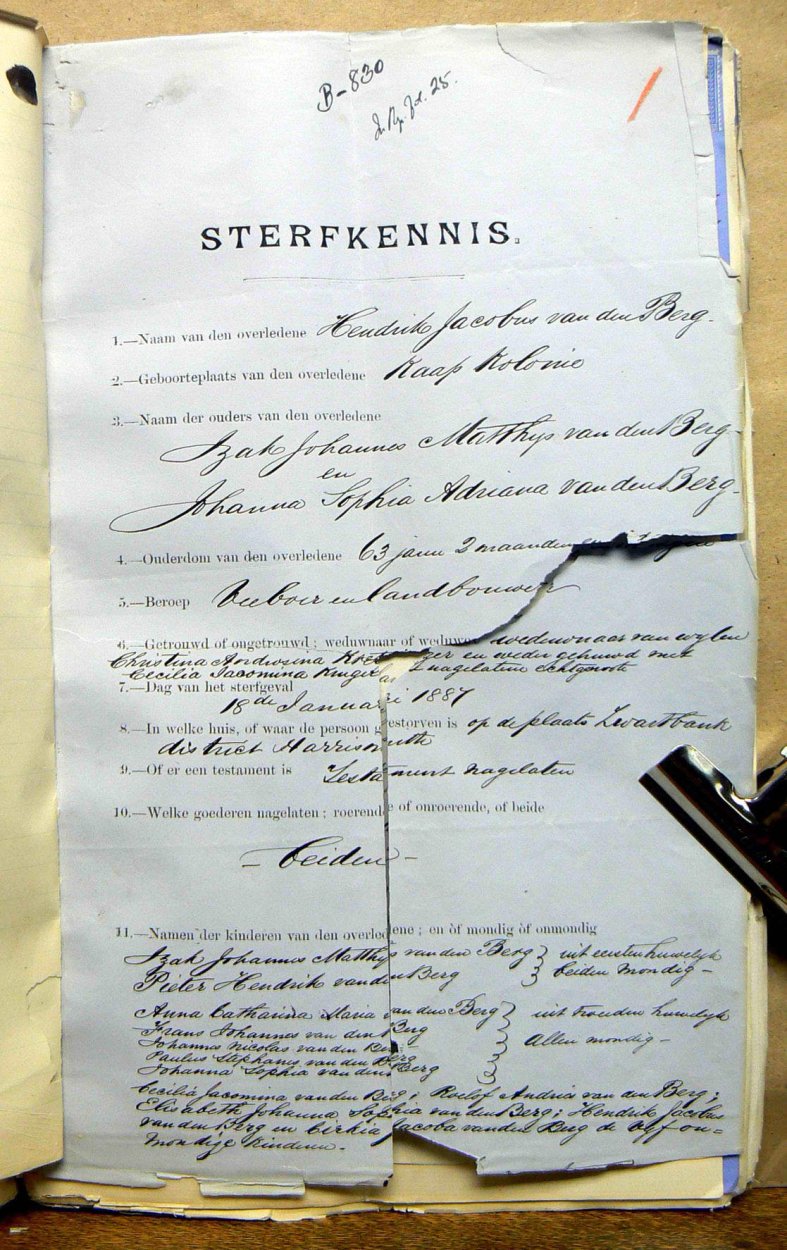 B-830
STERFKENNIS.
1.—Naam van den overledene Hendrik Jacobus van den Berg.
2.—Geboorteplaats van den overledene Kaap Kolonie
3.—Naam der ouders van den overledene
Izak Johannes Matthys van den Berg
en
Johanna Sophia Adriana van den Berg
4.—Ouderdom van den overledene 63 jaren 2 maanden
5.—Beroep Veeboer en landbouwer
6.—Getrouwd of ongetrouwd; weduwnaar of weduwe weduwnaar van wylen
Christina Andriesina en weder gehuwd met
Cecilia Jacomina Kruger nagelaten echtgenoote
7.—Dag van het sterfgeval
18de Januari 1887
8.—In welke huis, of waar de persoon gestorven is op de plaats Zwartbank
district Harrismith
9.—Of er een testament is Testament nagelaten
10.—Welke goederen nagelaten; roerende of onroerende, of beide
— beiden —
11.—Namen der kinderen van den overledene; en òf mondig òf onmondig
Izak Johannes Matthys van den Berg uit eersten huwelyk
Pieter Hendrik van den Berg beiden mondig —
Anna Catharina Maria van den Berg uit tweeden huwelyk
Frans Johannes van den Berg
Johannes Nicolas van den Berg Allen mondig —
Paulus Stephanus van den Berg
Johanna Sophia van den Berg
Cecilia Jacomina van den Berg; Roelof Andries van den Berg;
Elisabeth Johanna Sophia van den Berg; Hendrik Jacobus
van den Berg en Jacoba van den Berg de vyf on=
mondige kinderen.